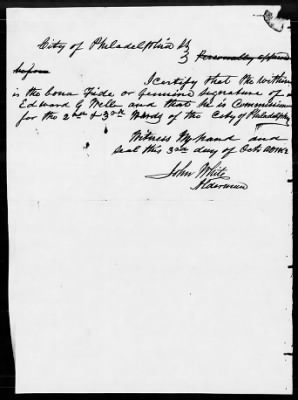 City of Philadelphia SS
Personally appeared
before
I certify that the within
is the bona Fide or Genuine Signature of
Edward G Webb and that he is Commissi
for the 2nd & 3rd Wards of the City of Philadelphia
Witness My hand and
seal this 3rd day of Oct
John White
Alderman